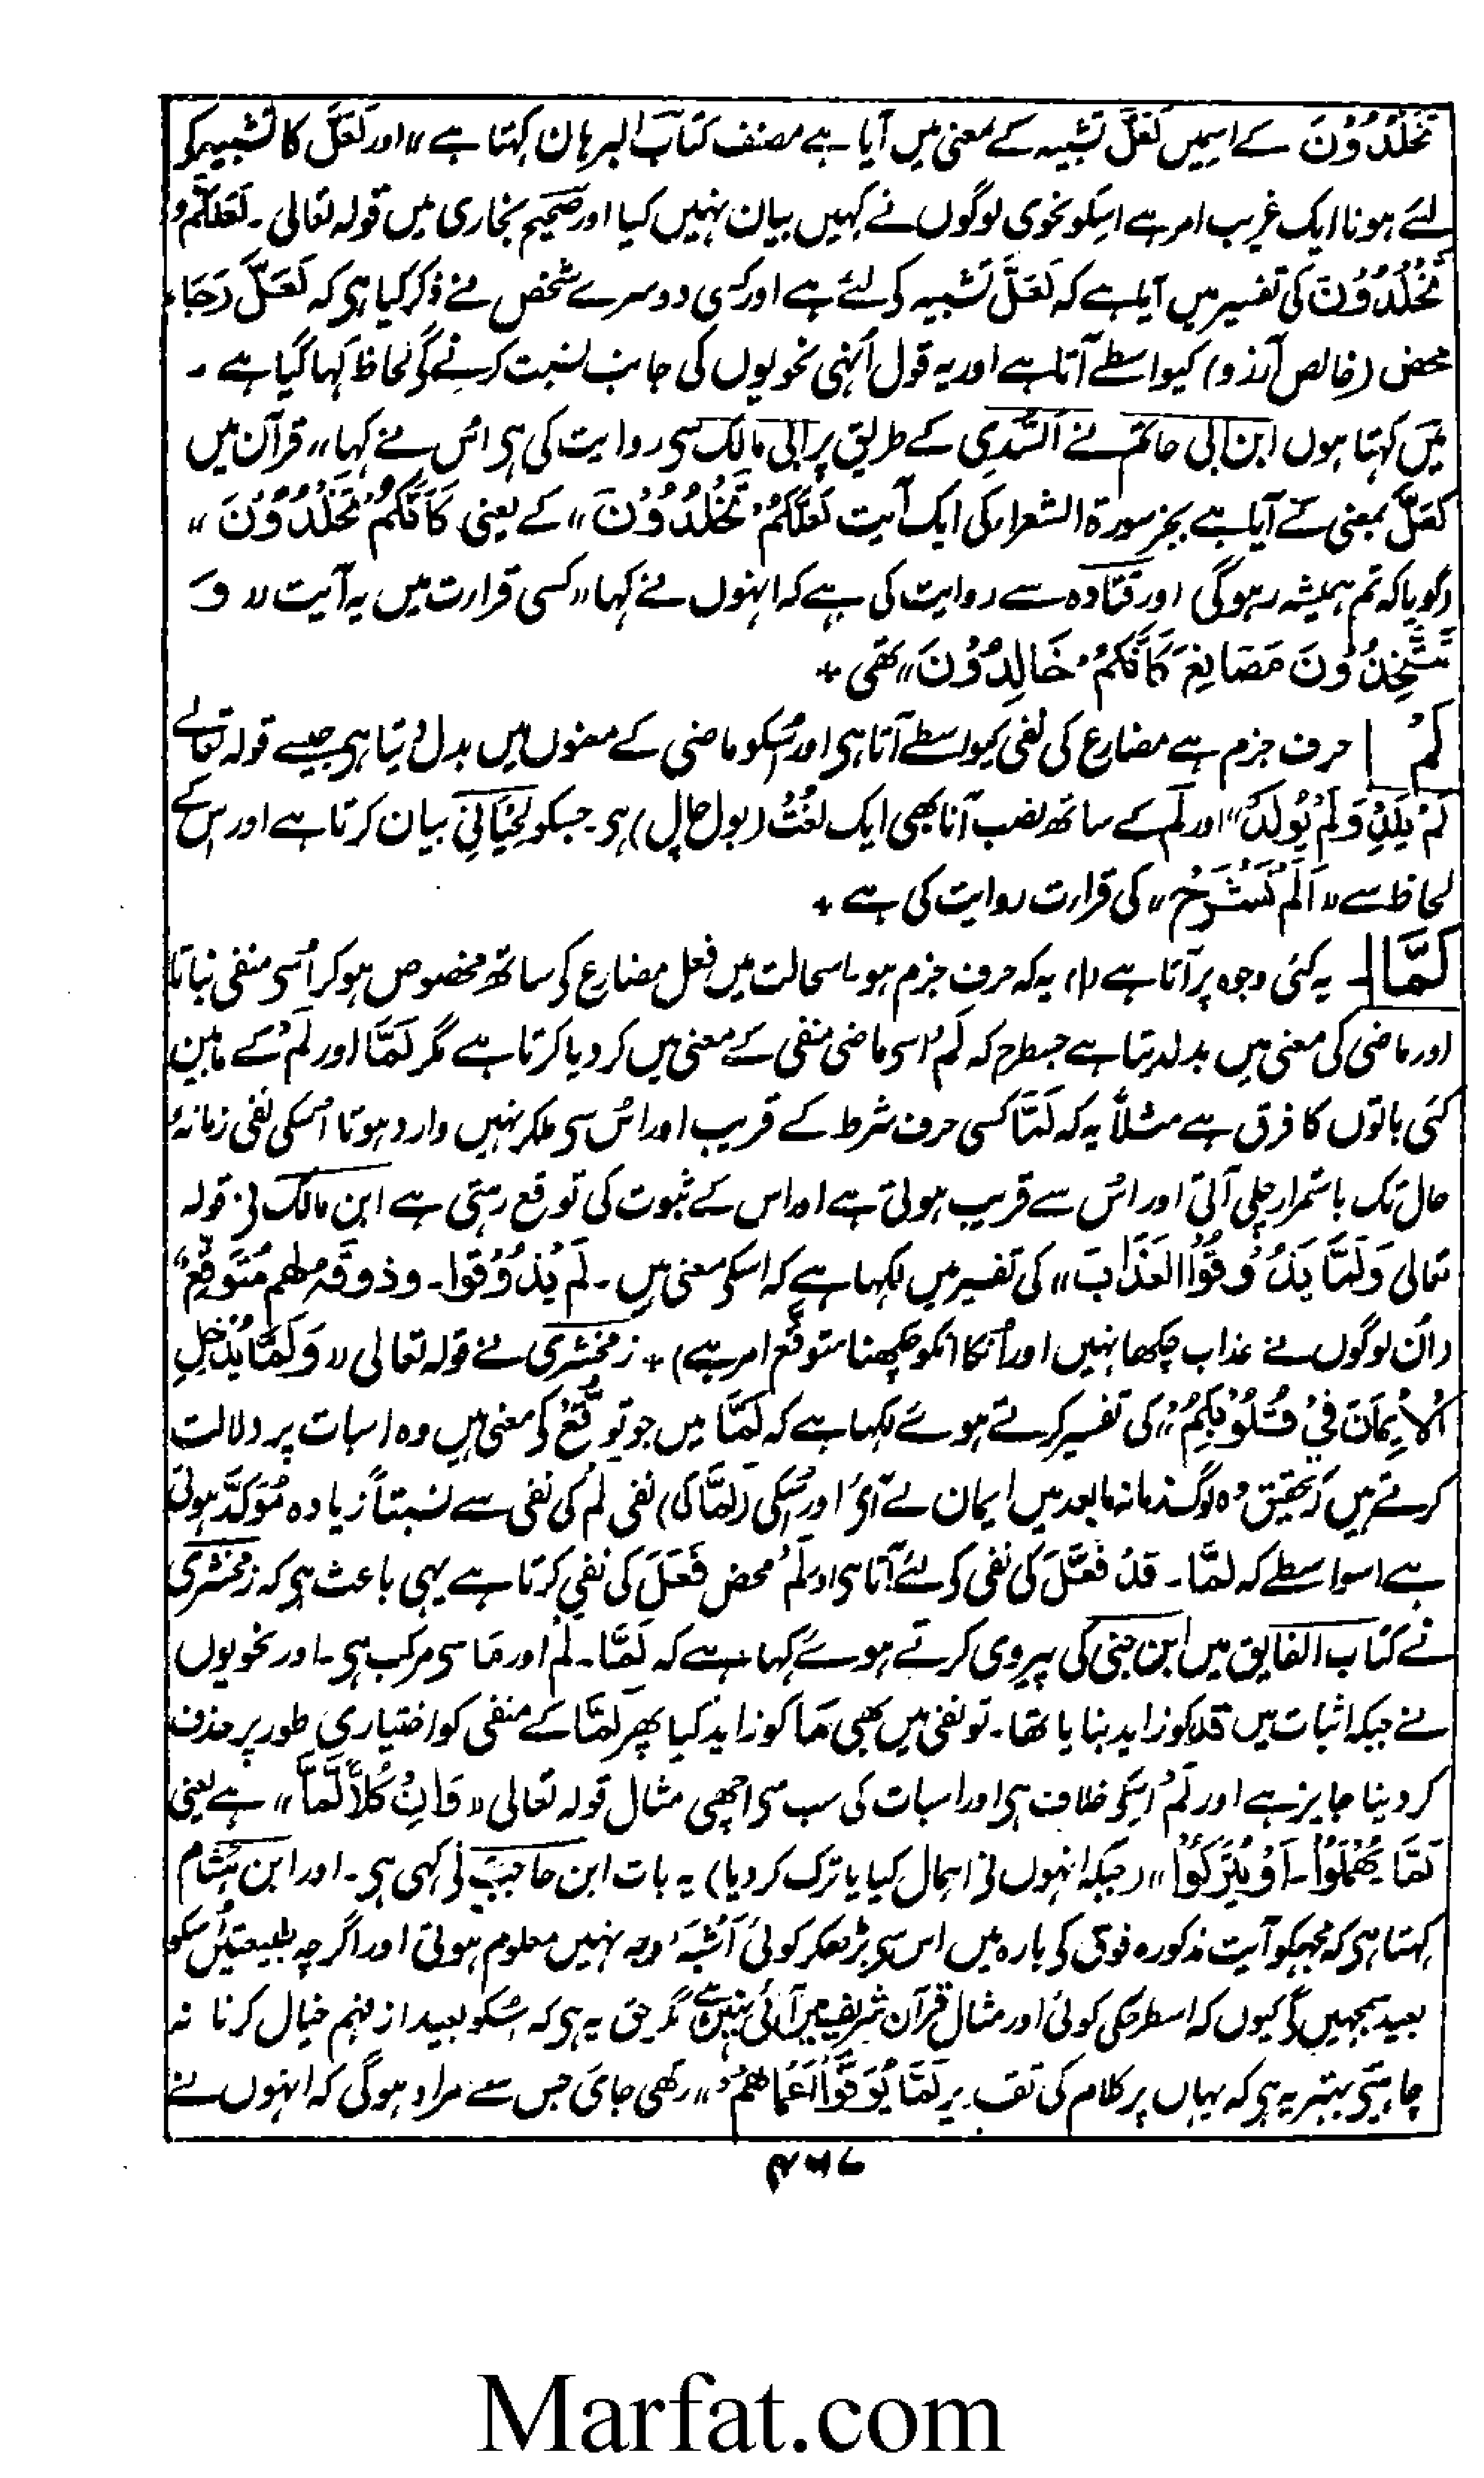 تَخْلُدُوْنَ کے اسمیں لَعَلَّ تشبیہ کے معنی میں آیا ہے مصنف کتاب البرہان کہتا ہے ،، اور لَعَلَّ کا تشبیہ کو
لئے ہونا ایک غریب امر ہے اسکو نحوی لوگوں نے کہیں بیان نہیں کیا اور صحیح بخاری میں قولہ تعالی ۔ لَعَلَّکُمْ
تَخْلُدُوْنَ کی تفسیر میں آیا ہے کہ لَعَلَّ تشبیہ کو لئے ہے اور کسی دوسرے شخص نے ذکر کیا ہی کہ لَعَلَّ رَجَاء
محض (خالص آرزو) کیواسطے آتا ہے اور یہ قول اُنہی نحویوں کی جانب نسبت کرنے کو لحاظ کہا گیا ہے ۔
میَں کہتا ہوں ابن ابی حاتم نے اَلسُّدِی کے طریق پر ابی مالک سی روایت کی ہی اُس نے کہا ،، قرآن میں
لَعَلَّ بمعنی کَے آیا ہے بجز سورۃ الشعراء کی ایک آیت لَعَلَّکُمْ تَخْلُدُوْنَ ،، کے یعنی کَاَنَّکُمْ تَخْلُدُوْنَ ،،
(گویا کہ تم ہمیشہ رہو گی اور قتادہ سے روایت کی ہے کہ انہوں نے کہا ،، کسی قراءت میں یہ آیت ،، وَ
تَتَّخِذُوْنَ مَصَانِعَ کَاَنَّکُمْ خَالِدُوْنَ ،، تھی +
لَمْ حرف جزم ہے مضارع کی نفی کیواسطے آتا ہی اور اُسکو ماضی کے معنوں میں بدل دیتا ہی جیسے قولہ تعالے
لَمْ یَلِدْ وَلَمْ یُوْلَدْ ،، اور لَم کے ساتھ نصب آنا بھی ایک لغت (بول چال) ہی ۔ جسکو لِحْیَانِی بیان کرتا ہے اور اس کے
لحاظ سے ،، اَلَمْ نَشْرَحْ ،، کی قراءت روایت کی ہے +
لَمَّا یہ کئی وجوہ پر آتا ہے (۱) یہ کہ حرف جزم ہو اسحالت میں فعل مضارع کی ساتھ مخصوص ہو کر اُسی منفی بناتا
اور ماضی کی معنی میں بدلدیتا ہے جسطرح کہ لَمْ اسی ماضی منفی کے معنی میں کر دیا کرتا ہے مگر لَمَّا اور لَمْ کے مابین
کئی باتوں کا فرق ہے مثلاً یہ کہ لَمَّا کسی حرف شرط کے قریب اور اُس سی ملکر نہیں وارد ہوتا اُسکی نفی زمانۂ
حال تک باستمرار چلی آتی اور اُس سے قریب ہوتی ہے اور اس کے ثبوت کی توقع رہتی ہے ابن مالک نی قولہ
تعالی وَلَمَّا یَذُوْقُوا الْعَذَابَ ،، کی تفسیر میں لکہا ہے کہ اسکی معنی ہیں ۔ لَمْ یَذُوْقُوا ۔ وذوقہ لھم مُتَوَقَّعٌ
(اُن لوگوں نے عذاب چکھا نہیں اور اُنکا اُنکو چکھنا متوقَّع امر ہے) + زمخشری نے قولہ تعالی ،، وَلَمَّا یَدْخُلِ
الْاِیْمَانُ فِیْ قُلُوْبِکُمْ ،، کی تفسیر کرتے ہوئے لکہا ہے کہ لَمَّا میں جو توقُّع کی معنی ہیں وہ اسبات پر دلالت
کرتے ہیں کہ تحقیق وہ لوگ زمانہ مابعد میں ایمان لے آئی اور اُسکی (لَمَّا کی) نفی لم کی نفی سے نسبتاً زیادہ مُوَکَّد ہوتی
ہے اسواسطے کہ لَمَّا ۔ قَدْ فَعَلَ کی نفی کو لئے آتا ہی اور لَمْ محض فَعَلَ کی نفی کرتا ہے یہی باعث ہی کہ زمخشری
نے کتاب الفایق میں ابن جنی کی پیروی کرتے ہوئے کہا ہے کہ لَمَّا ۔ لَمْ اور مَا سی مرکب ہی ۔ اور نحویوں
نے جبکہ اثبات میں قد کو زاید بنایا تھا ۔ تو نفی میں بھی مَا کو زاید کیا پھر لَمَّا کے منفی کو اختیاری طور پر حذف
کر دینا جایز ہے اور لَمْ اسکی خلاف ہی اور اسبات کی سب سی اچھی مثال قولہ تعالی ،، وَاِنَّ کُلًّا لَّمَّا ،، ہے یعنی
لَمَّا یُھْمَلُوْا ۔ اَوْ یُتْرَکُوْا ،، (جبکہ انہوں نی اہمال کیا یا ترک کر دیا) یہ بات ابن حاجب نی کہی ہی ۔ اور ابن ہشام
کہتا ہی کہ مجہکو آیت مذکورہ فوق کی بارہ میں اس سی بڑھکر کوئی اَشْبَہ وجہ نہیں معلوم ہوتی اور اگرچہ طبیعتیں اُسکو
بعید سمجہیں گی کیوں کہ اسطرحکی کوئی اور مثال قرآن شریف میں آئی نہیں ہے مگر حق یہ ہی کہ اُسکو بعید از فہم خیال کرنا نہ
چاہیئی بہتر یہ ہی کہ یہاں پر کلام کی تقدیر لَمَّا یُوَفَّوْا اَعْمَالَھُمْ ،، رکھی جائی جس سے مراد ہو گی کہ انہوں نے
Marfat.com